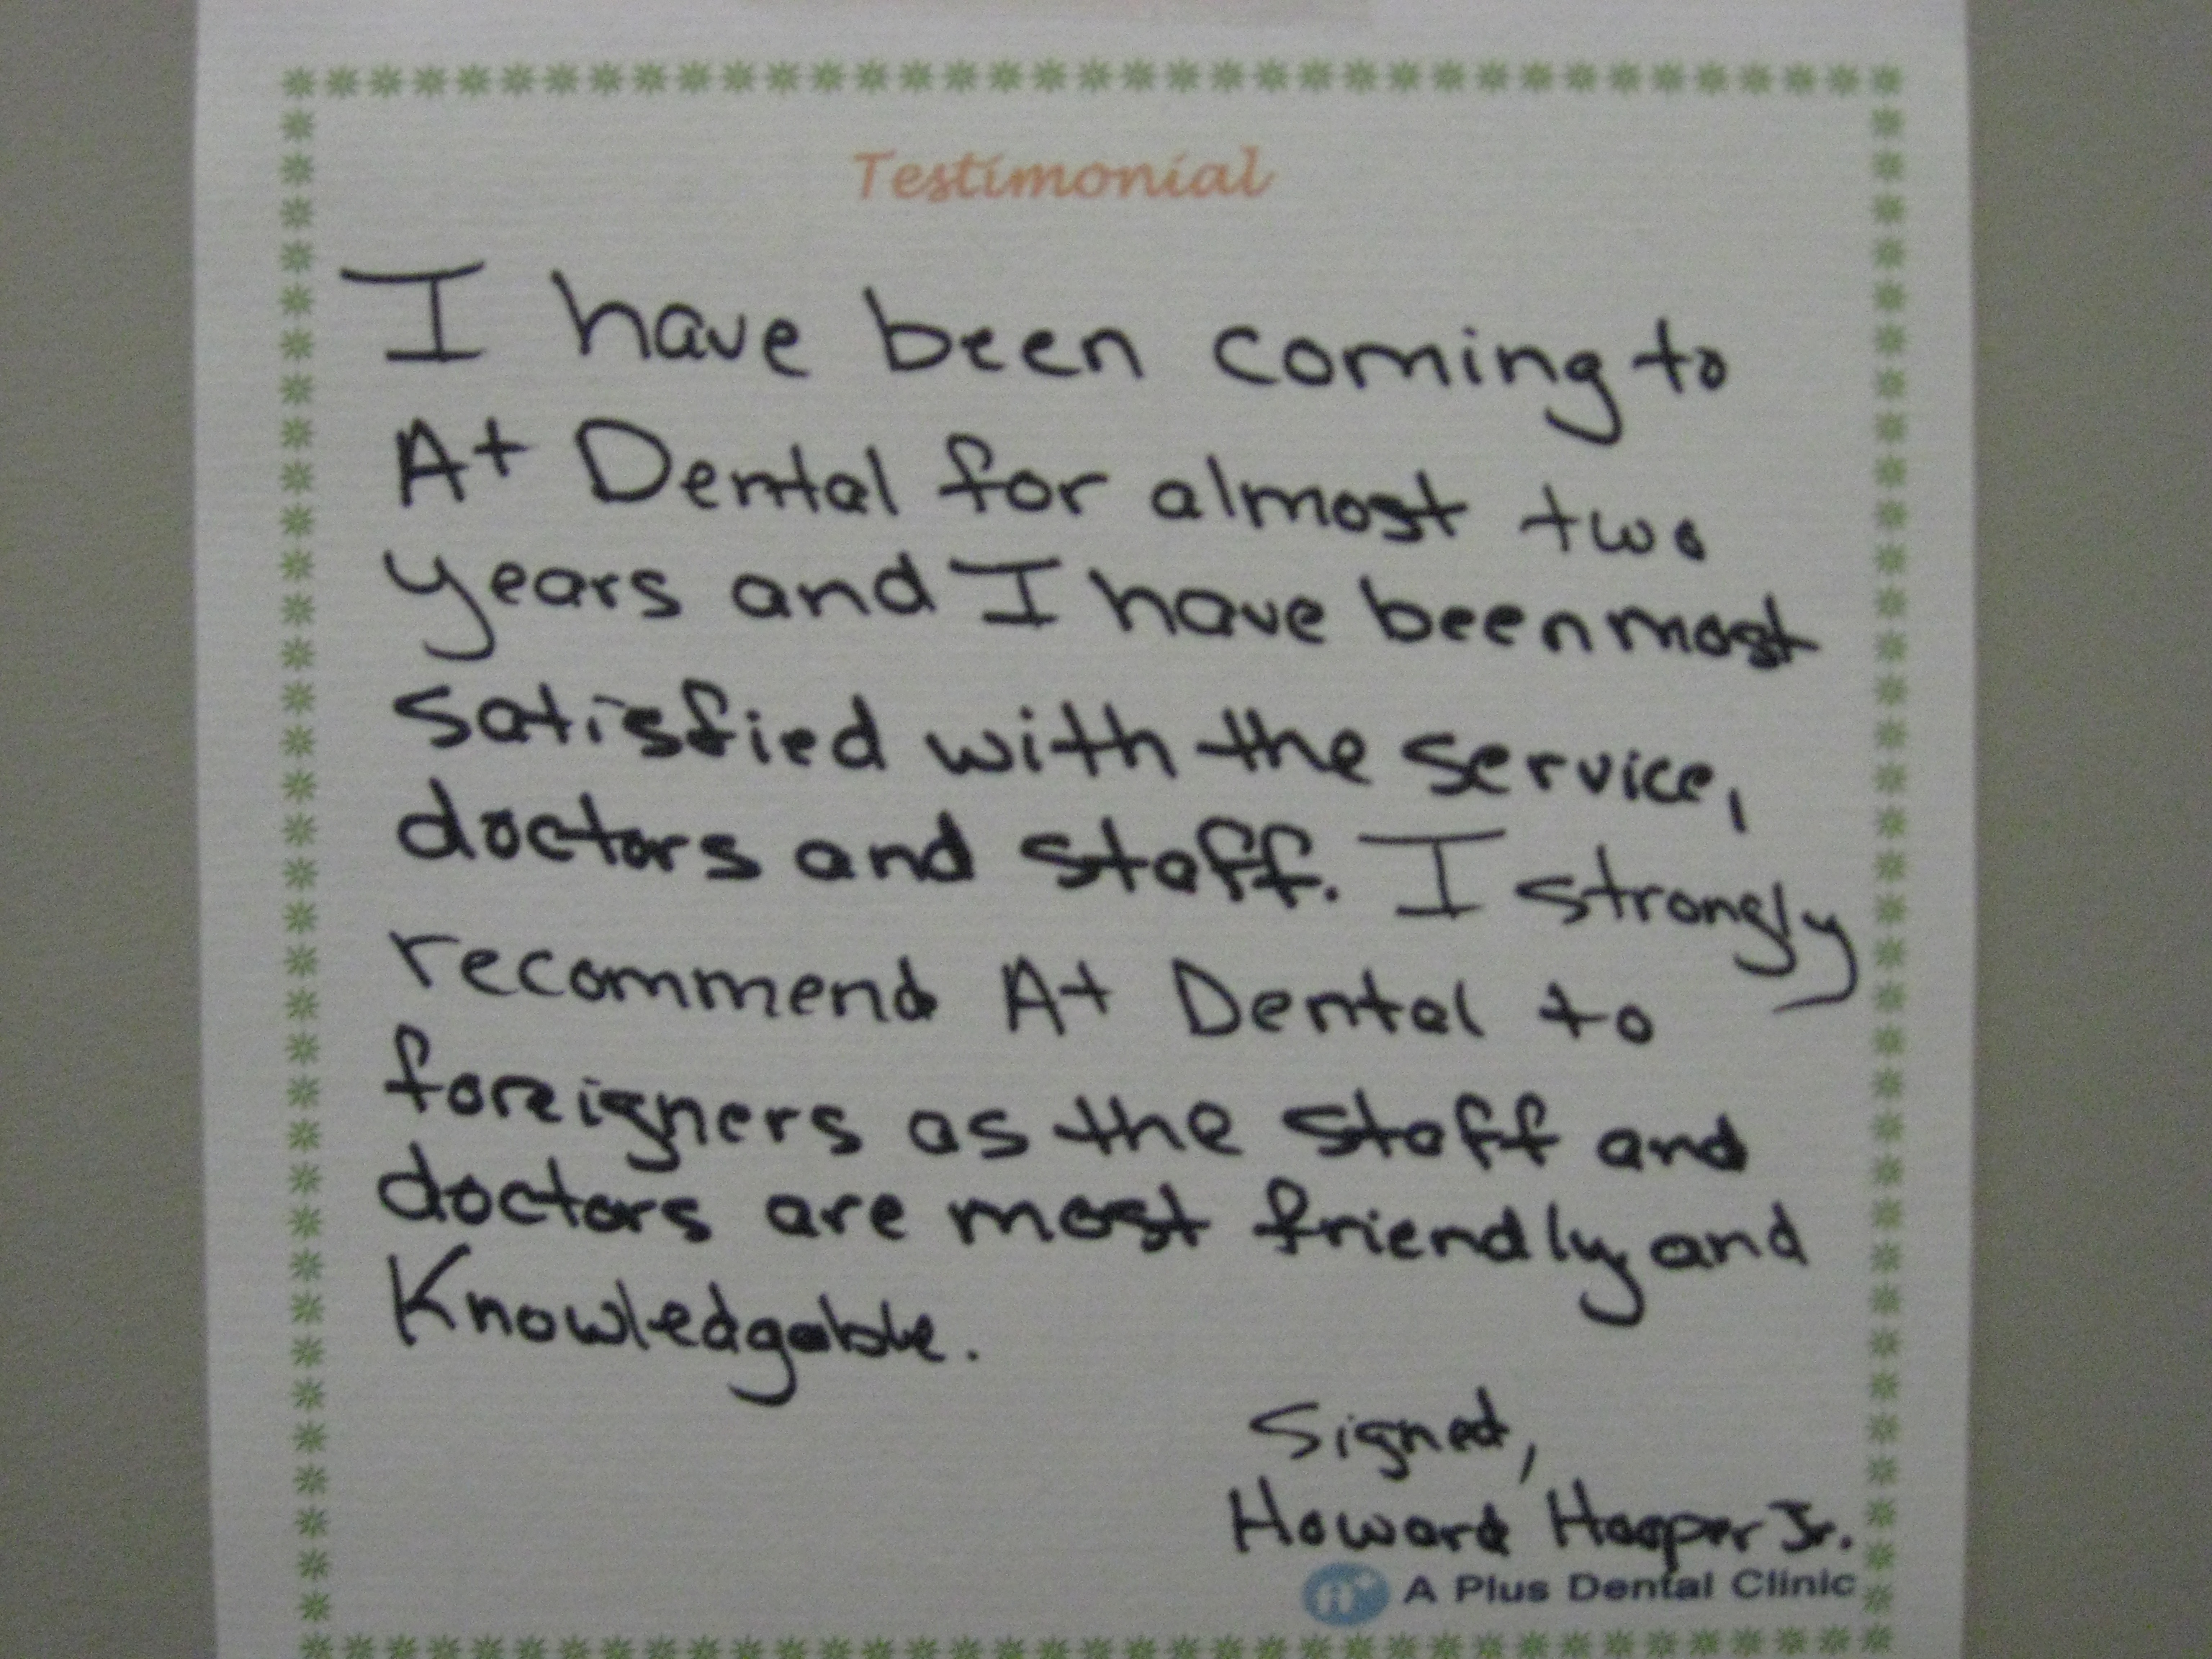 Testimonial
I have been coming to
A+ Dental for almost two
years and I have been most
satisfied with the service,
doctors and staff. I strongly
recommend A+ Dental to
foreigners as the staff and
doctors are most friendly and
Knowledgable.
Signed,
Howard Hooper Jr.
A Plus Dental Clinic